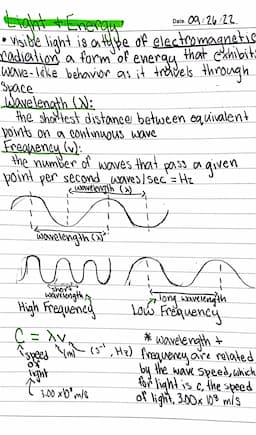 Light + Energy
Date 09.26.22
• visible light is a type of electromagnetic
radiation a form of energy that exhibits
wave-like behavior as it travels through
space
Wavelength (λ):
the shortest distance between equivalent
points on a continuous wave
Frequency (v):
the number of waves that pass a given
point per second waves/sec = Hz
wavelength (λ)
wavelength (λ)
short wavelength
long wavelength
High Frequency
Low Frequency
C = λv
speed of light
(m)
(s⁻¹, Hz)
3.00 x 10⁸ m/s
* wavelength +
frequency are related
by the wave speed, which
for light is c, the speed
of light, 3.00 x 10⁸ m/s